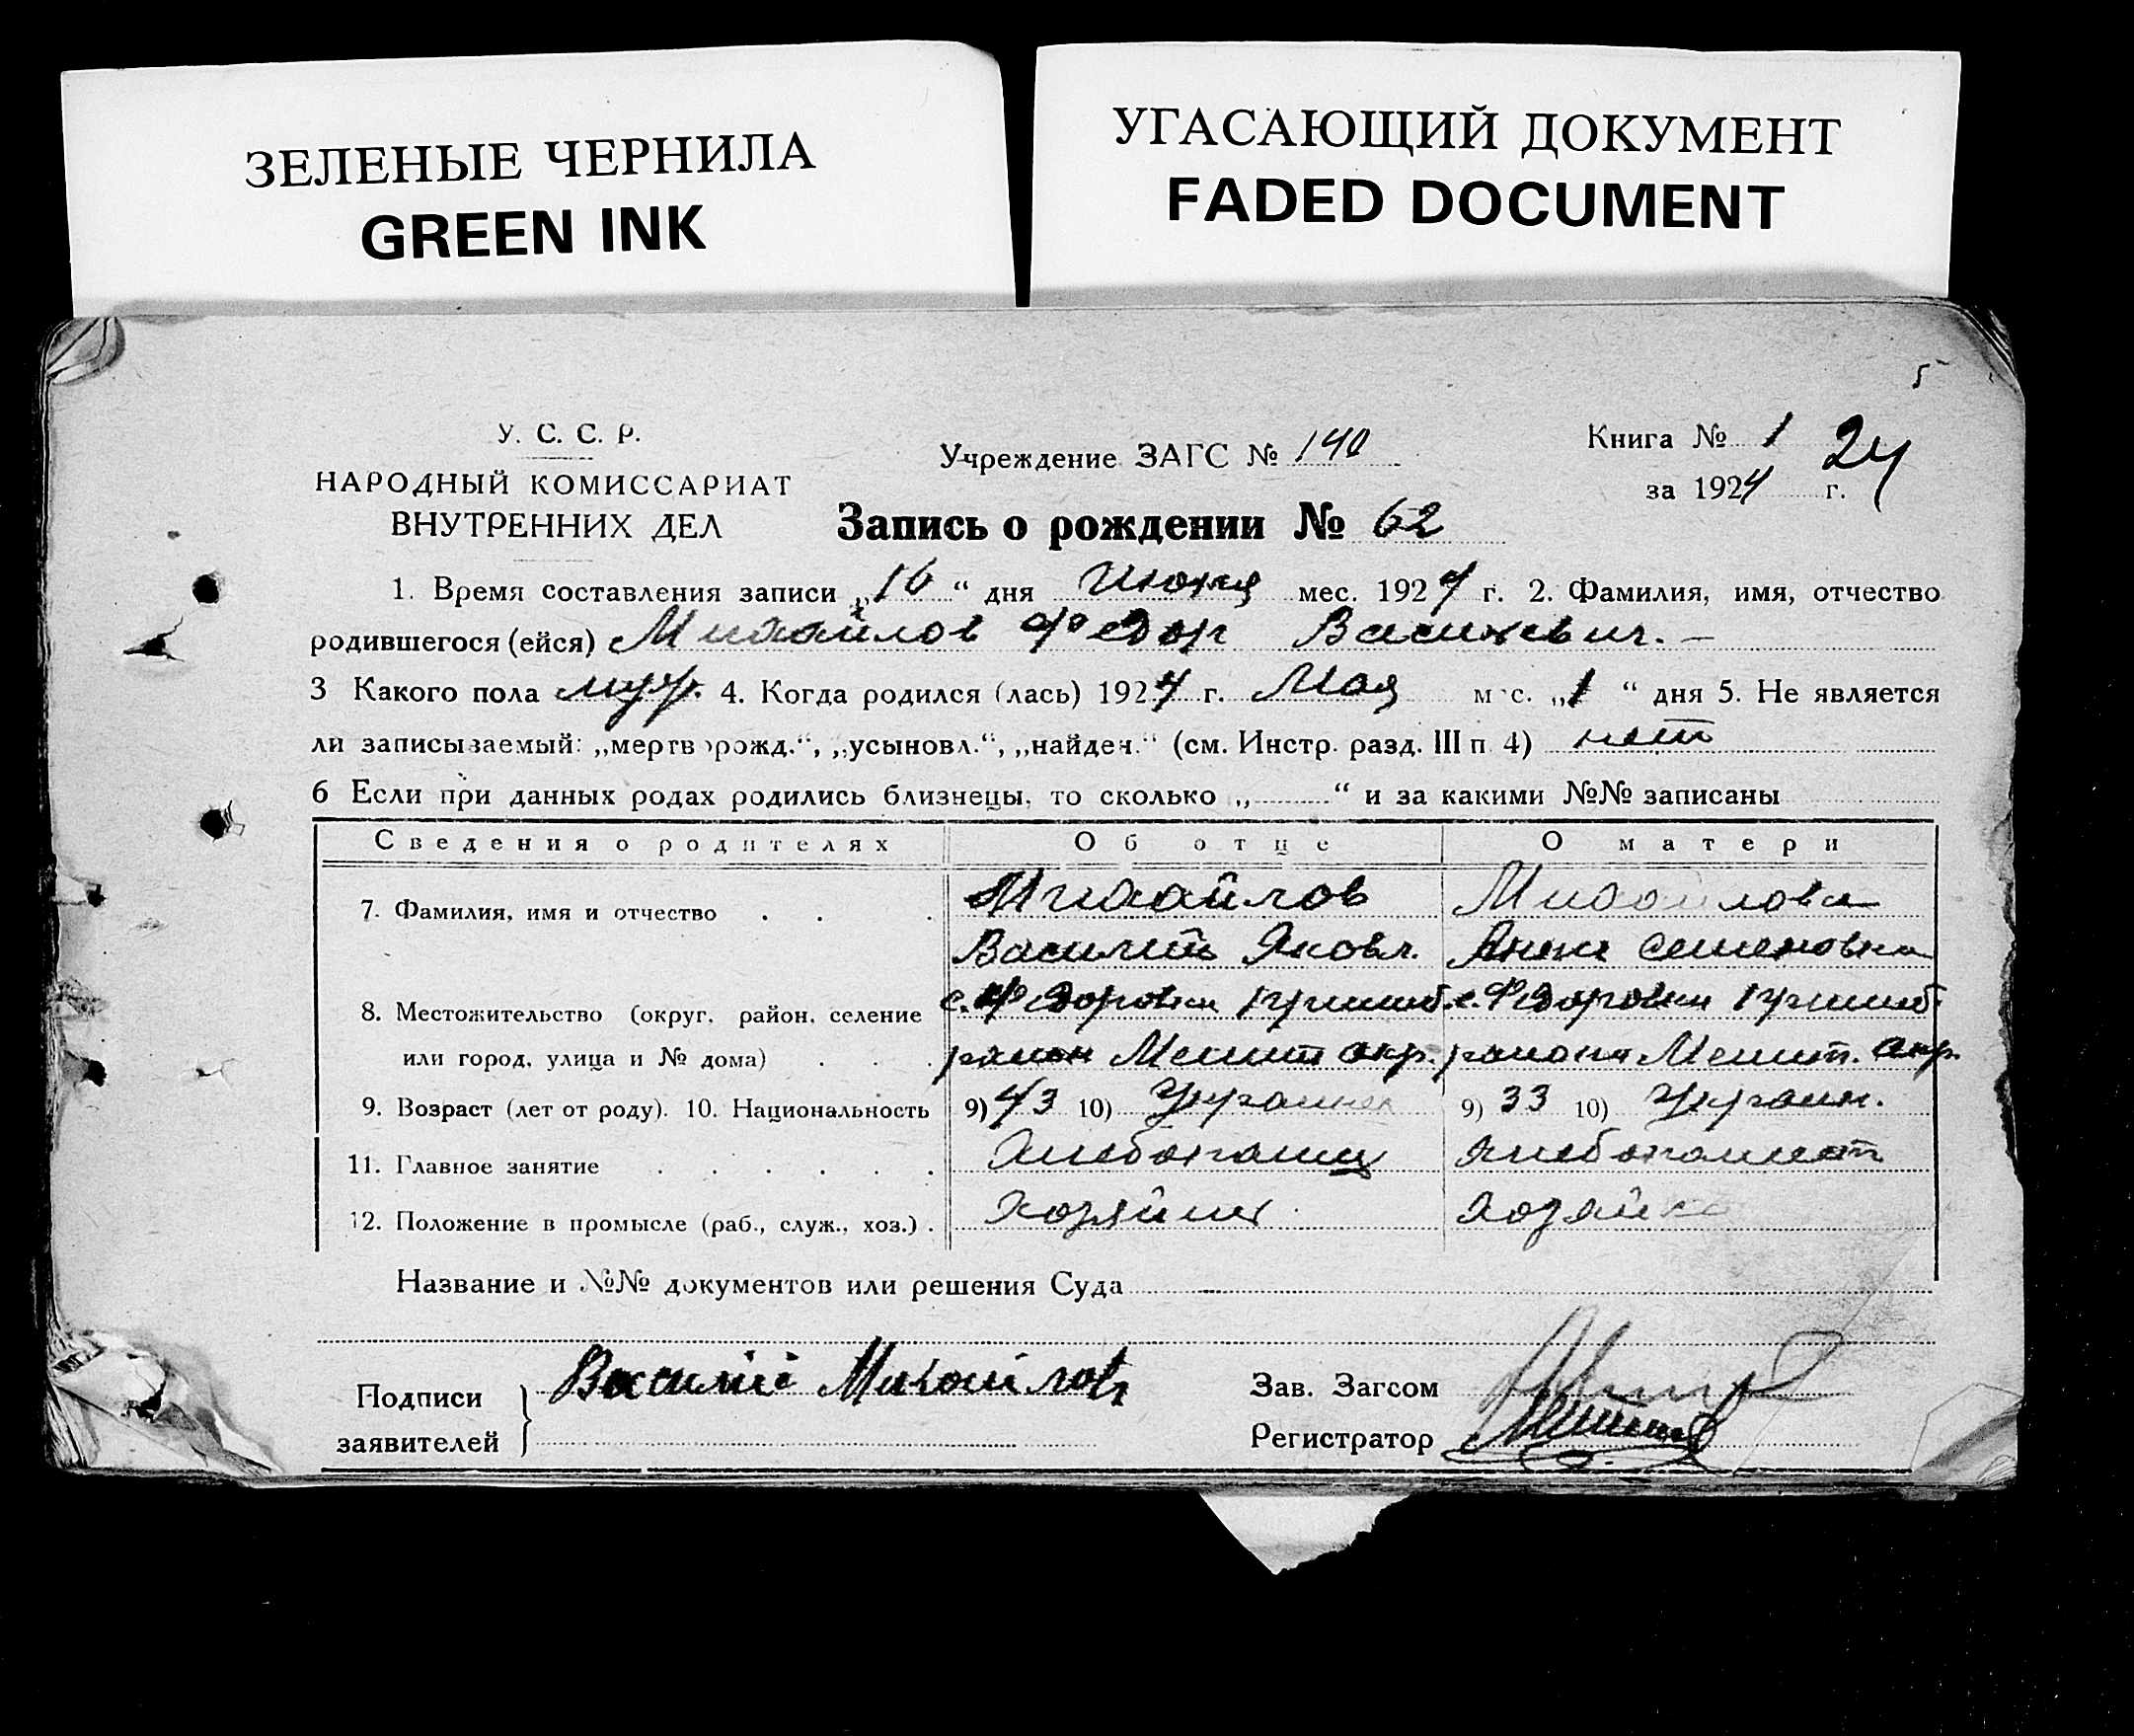 ЗЕЛЕНЫЕ ЧЕРНИЛА
GREEN INK
УГАСАЮЩИЙ ДОКУМЕНТ
FADED DOCUMENT
5
У. С. С. Р.
НАРОДНЫЙ КОМИССАРИАТ
ВНУТРЕННИХ ДЕЛ
Учреждение ЗАГС № 140
Книга № 1 24
за 1924 г.
Запись о рождении № 62
1. Время составления записи „16“ дня Июня мес. 1924 г. 2. Фамилия, имя, отчество
родившегося (ейся) Михайлов Федор Васильевич. —
3 Какого пола муж. 4. Когда родился (лась) 1924 г. Мая мес. „1“ дня 5. Не является
ли записываемый: „мертворожд.“, „усыновл.“, „найден.“ (см. Инстр. разд. III п 4) нет
6 Если при данных родах родились близнецы, то сколько „ “ и за какими №№ записаны
Сведения о родителях Об отце О матери
7. Фамилия, имя и отчество Михайлов Михайлова
Василий Яковл. Анна Семеновна
8. Местожительство (округ, район, селение с. Федоровки с. Федоровки
или город, улица и № дома) район Мелит окр. района Мелит. окр.
9. Возраст (лет от роду). 10. Национальность 9) 43 10) Украинец 9) 33 10) Украин.
11. Главное занятие Хлебопашец Хлебопашест
12. Положение в промысле (раб., служ., хоз.) . Хозяин Хозяйка
Название и №№ документов или решения Суда
Подписи заявителей } Василий Михайлов
Зав. Загсом
Регистратор